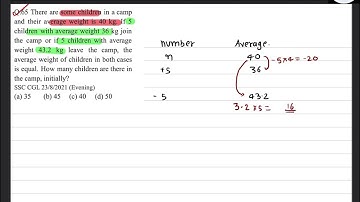 Q.65 There are some children in a camp
and their average weight is 40 kg. If 5
children with average weight 36 kg join
the camp or if 5 children with average
weight 43.2 kg leave the camp, the
average weight of children in both cases
is equal. How many children are there in
the camp, initially?
SSC CGL 23/8/2021 (Evening)
(a) 35 (b) 45 (c) 40 (d) 50
number Average
n 40
+5 36 -5×4 = -20
-5 43.2
3.2×5 = 16